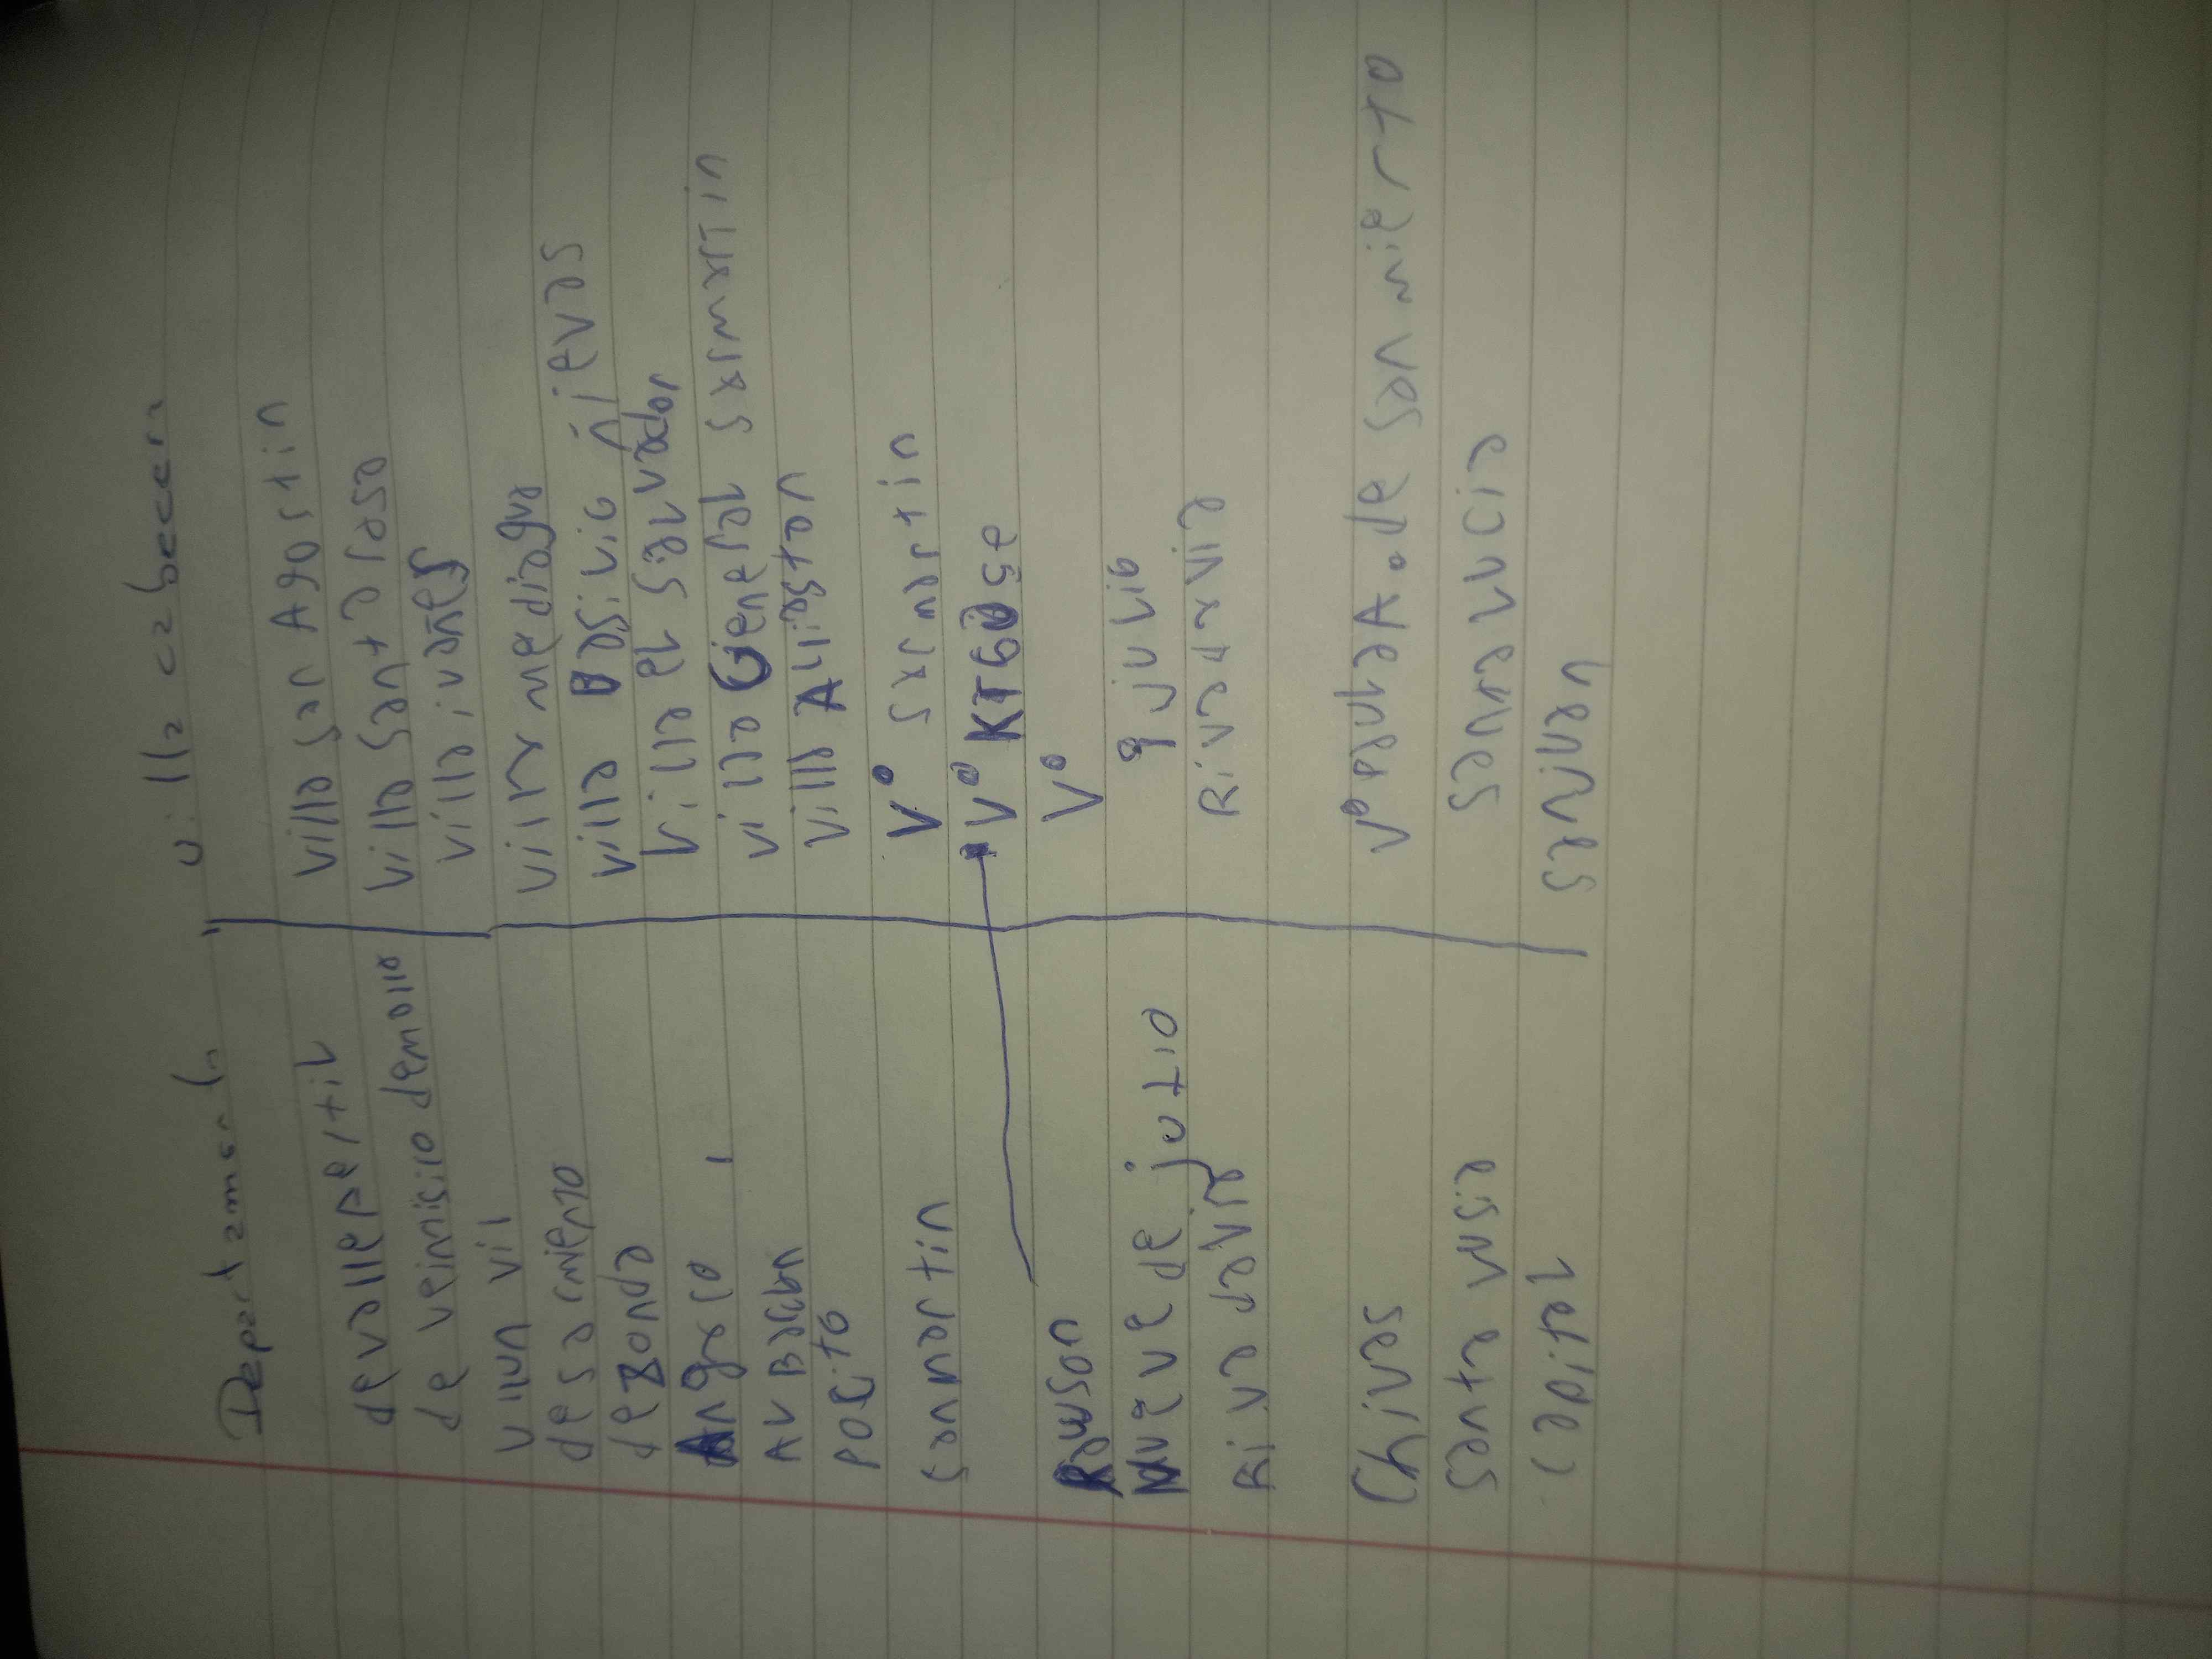 Departament villa cabecera
de valle pertil villa san Agostin
de veinisico demollo villa santa rasa
ullun vil villa ivañes
de sarmiento villa mediagua
de zonda villa Basivio ñievas
Angaco villa el Salvador
Al Bardon villa General Sxrmxrtin
POCito villa Alliaston
Sanmartin V° Sxrmartin
Rawson V° KTGOSE
V°
Nueve de jutio 9 julio
Rivadavia Rivadavia
Chivas V° Aequeda de San migrto
santa Musia Santa Lucia
capital San Juan